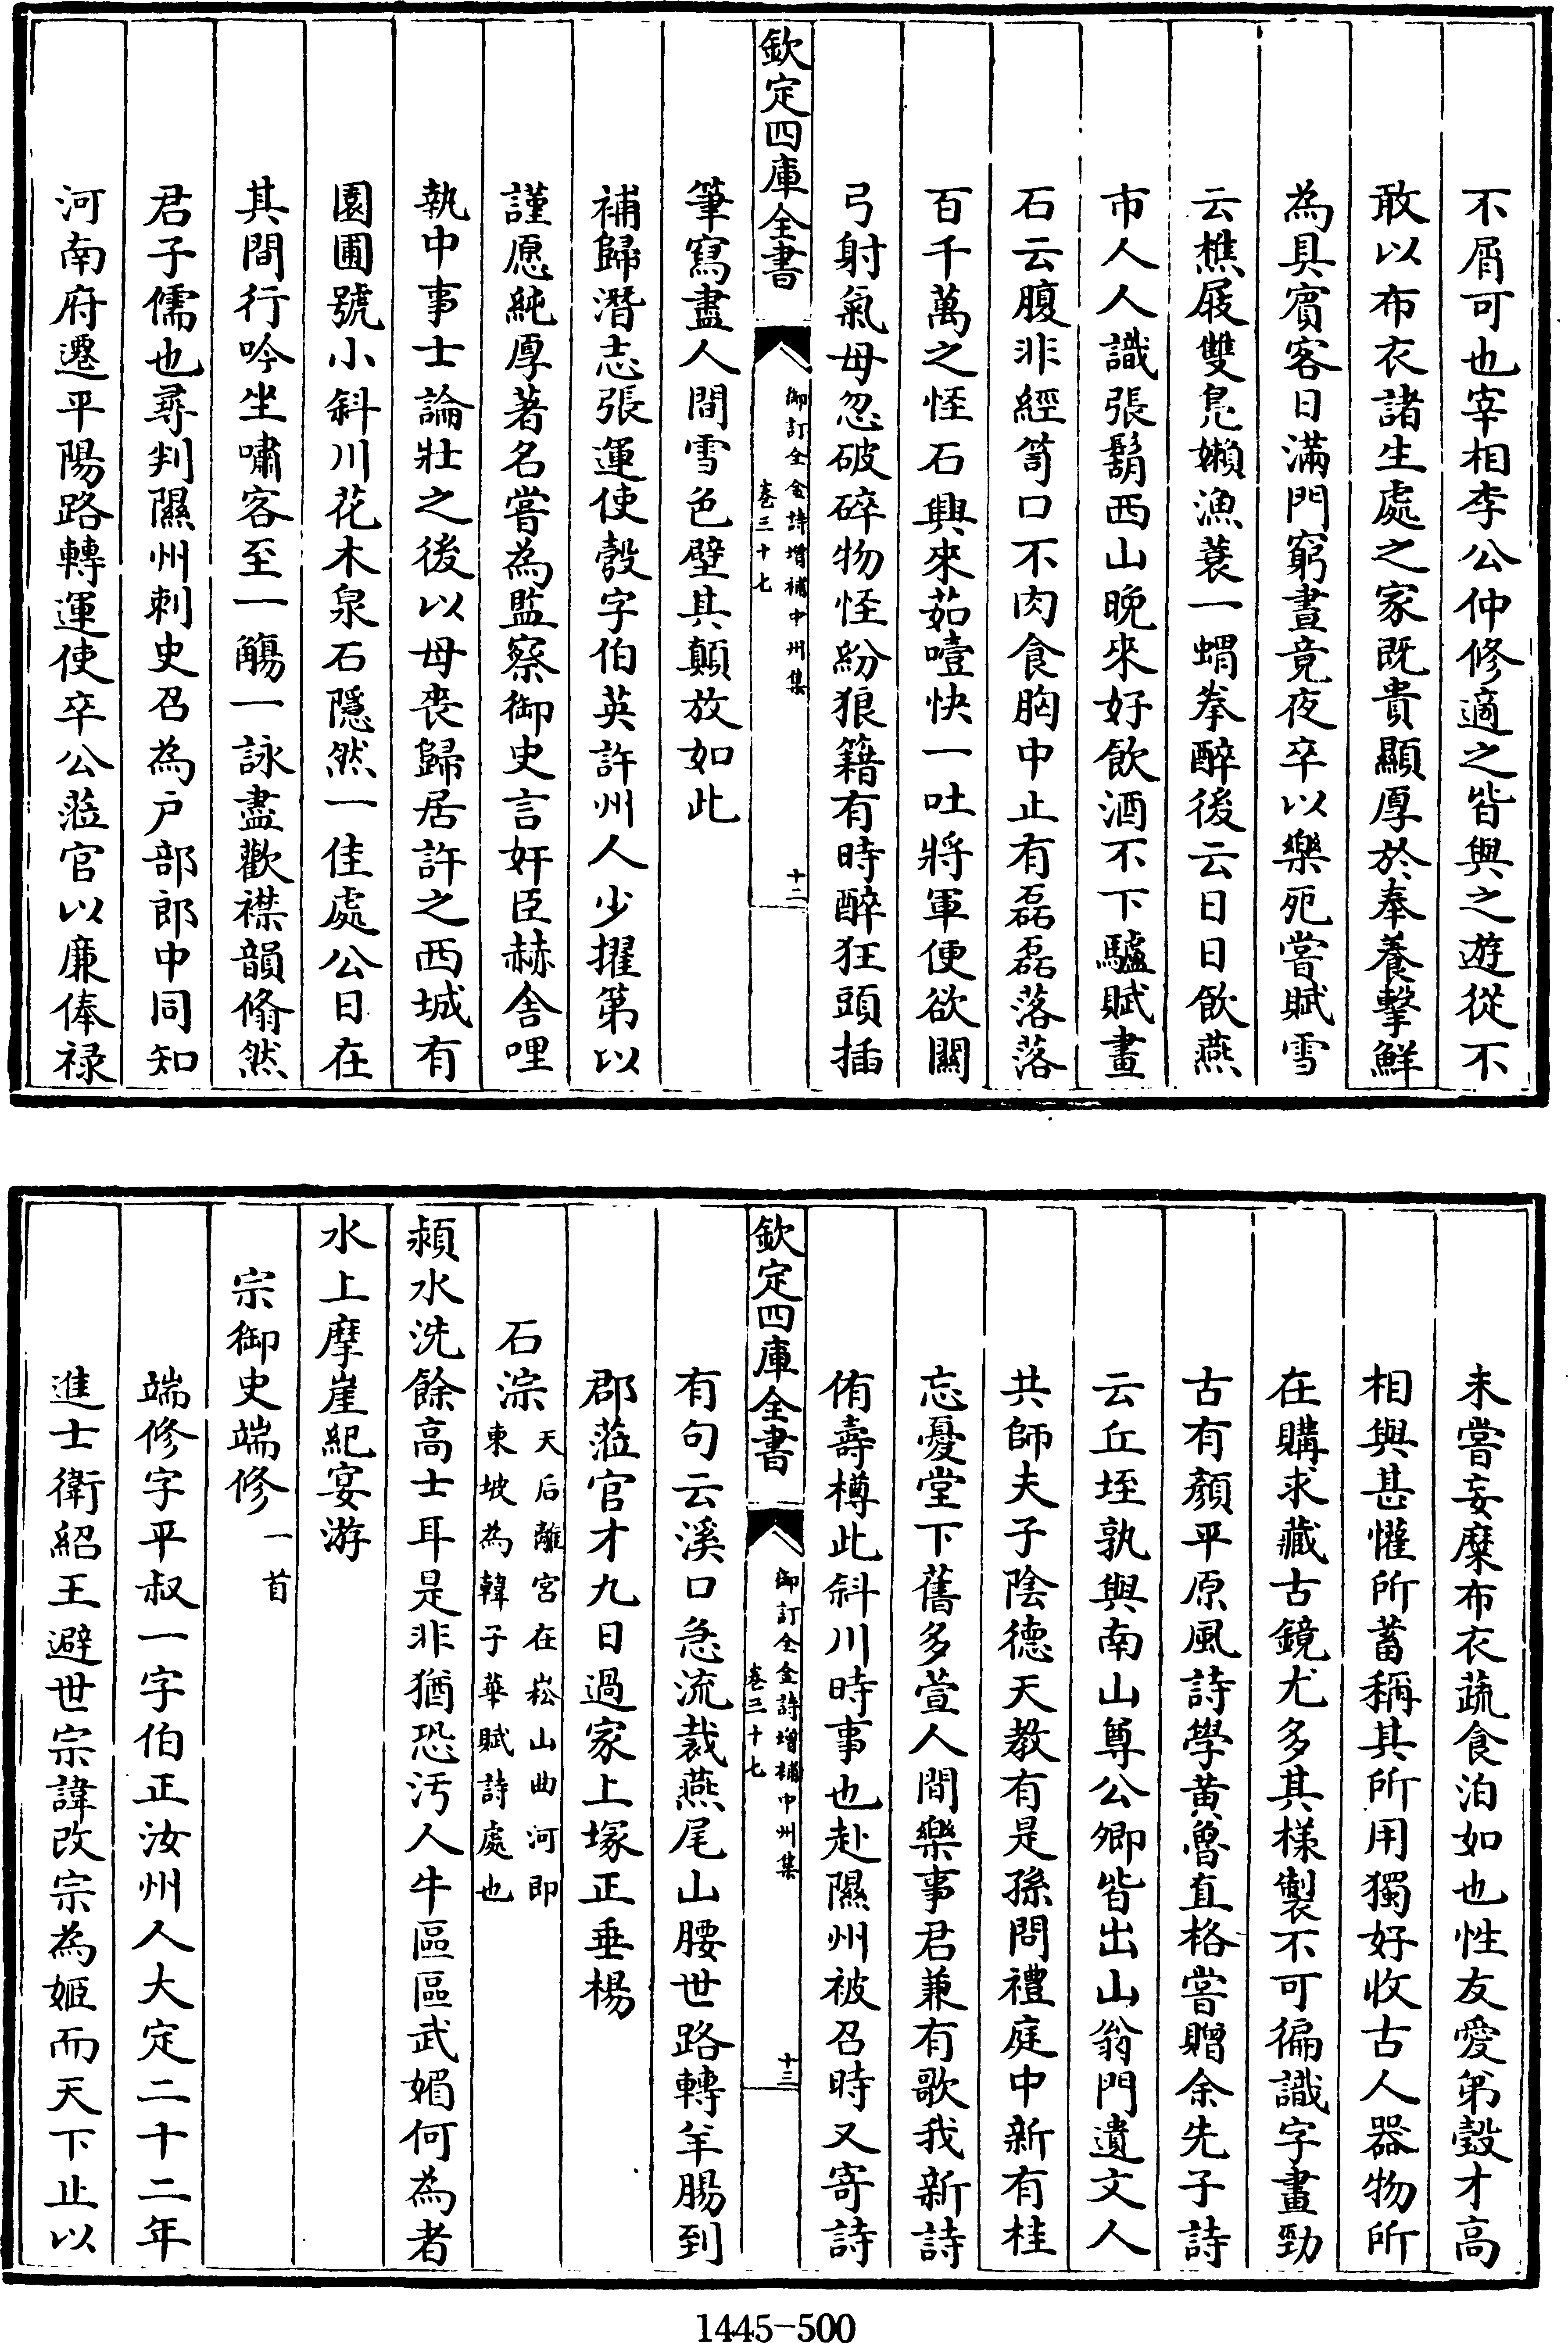 不屑可也宰相李公仲修適之皆與之遊從不
敢以布衣諸生處之家既貴顯厚於奉養擊鮮
為具賓客日滿門窮晝竟夜卒以樂死嘗賦雪
云樵屐雙鳧嬾漁蓑一蝟拳醉後云日日飲燕
市人人識張鬍西山晚來好飲酒不下驢賦畫
石云腹非經笥口不肉食胸中止有磊磊落落
百千萬之怪石興來茹噎快一吐將軍便欲關
弓射氣母忽破碎物怪紛狼籍有時醉狂頭插
欽定四庫全書
御訂全金詩增補中州集
卷三十七
十二
筆寫盡人間雪色壁其顛放如此
補歸潛志張運使瑴字伯英許州人少擢第以
謹愿純厚著名嘗為監察御史言奸臣赫舍哩
執中事士論壯之後以母喪歸居許之西城有
園圃號小斜川花木泉石隱然一佳處公日在
其間行吟坐嘯客至一觴一詠盡歡襟韻翛然
君子儒也尋判隰州刺史召為户部郎中同知
河南府遷平陽路轉運使卒公蒞官以廉俸禄
未嘗妄糜布衣蔬食泊如也性友愛弟瑴才高
相與甚懽所蓄稱其所用獨好收古人器物所
在購求藏古鏡尤多其樣製不可徧識字畫勁
古有顏平原風詩學黄魯直格嘗贈余先子詩
云丘垤孰與南山尊公卿皆出山翁門遺文人
共師夫子陰德天教有是孫問禮庭中新有桂
忘憂堂下舊多萱人間樂事君兼有歌我新詩
侑壽樽此斜川時事也赴隰州被召時又寄詩
欽定四庫全書
御訂全金詩增補中州集
卷三十七
十三
有句云溪口急流裁燕尾山腰世路轉羊腸到
郡蒞官才九日過家上塚正垂楊
石淙
天后離宮在崧山曲河即
東坡為韓子華賦詩處也
潁水洗餘高士耳是非猶恐污人牛區區武媚何為者
水上摩崖紀宴游
宗御史端修
一首
端修字平叔一字伯正汝州人大定二十二年
進士衛紹王避世宗諱改宗為姬而天下止以
1445-500